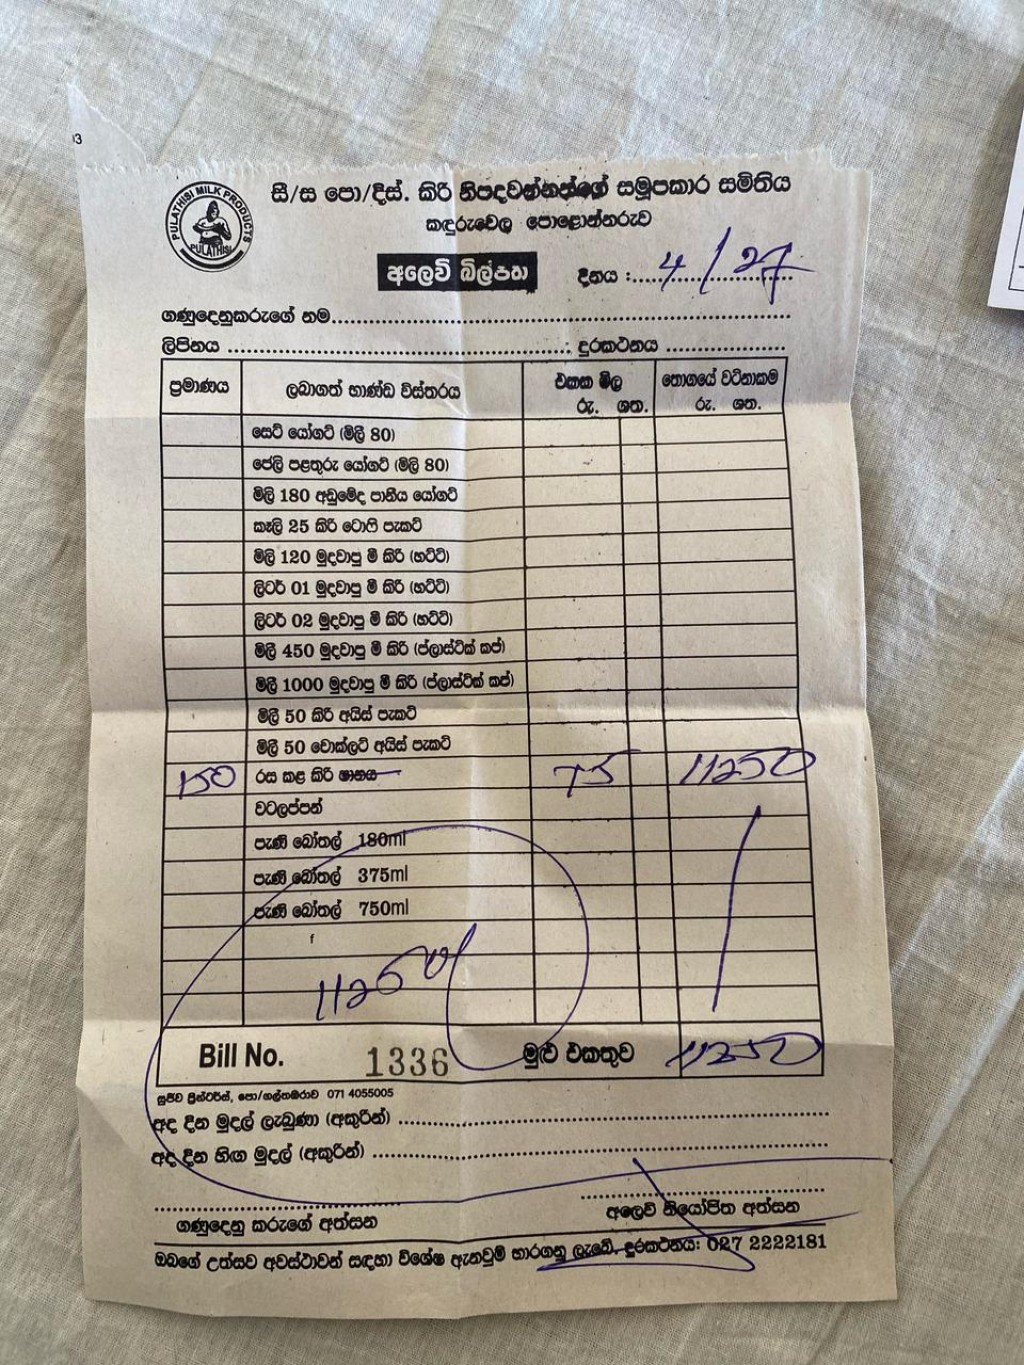 PULATHISI MILK PRODUCTS
PULATHISI
සී/ස පො/දිස්. කිරි නිපදවන්නන්ගේ සමූපකාර සමිතිය
කඳුරුවෙල පොළොන්නරුව
අලෙවි බිල්පත දිනය : 4/27
ගණුදෙනුකරුගේ නම
ලිපිනය : දුරකථනය
ප්‍රමාණය ලබාගත් භාණ්ඩ විස්තරය එකක මිල තොගයේ වටිනාකම
රු. ශත. රු. ශත.
සෙට් යෝගට් (මිලී 80)
ජෙලි පළතුරු යෝගට් (මිලී 80)
මිලි 180 අඩුමේද පානීය යෝගට්
කෑලි 25 කිරි ටොෆි පැකට්
මිලි 120 මුදවාපු මී කිරි (හට්ටි)
ලීටර් 01 මුදවාපු මී කිරි (හට්ටි)
ලීටර් 02 මුදවාපු මී කිරි (හට්ටි)
මිලී 450 මුදවාපු මී කිරි (ප්ලාස්ටික් කප්)
මිලී 1000 මුදවාපු මී කිරි (ප්ලාස්ටික් කප්)
මිලී 50 කිරි අයිස් පැකට්
මිලී 50 චොක්ලට් අයිස් පැකට්
150 රස කළ කිරි පානය 75 11250
වටලප්පන්
පැණි බෝතල් 180ml
පැණි බෝතල් 375ml
පැණි බෝතල් 750ml
11250/
Bill No. 1336 මුළු එකතුව 11250
සුජීව ප්‍රින්ටර්ස්, පො/ගල්තඹරාව 071 4055005
අද දින මුදල් ලැබුණා (අකුරින්)
අද දින හිඟ මුදල් (අකුරින්)
ගණුදෙනු කරුගේ අත්සන අලෙවි නියෝජිත අත්සන
ඔබගේ උත්සව අවස්ථාවන් සඳහා විශේෂ ඇනවුම් භාරගනු ලැබේ. දුරකථනය: 027 2222181